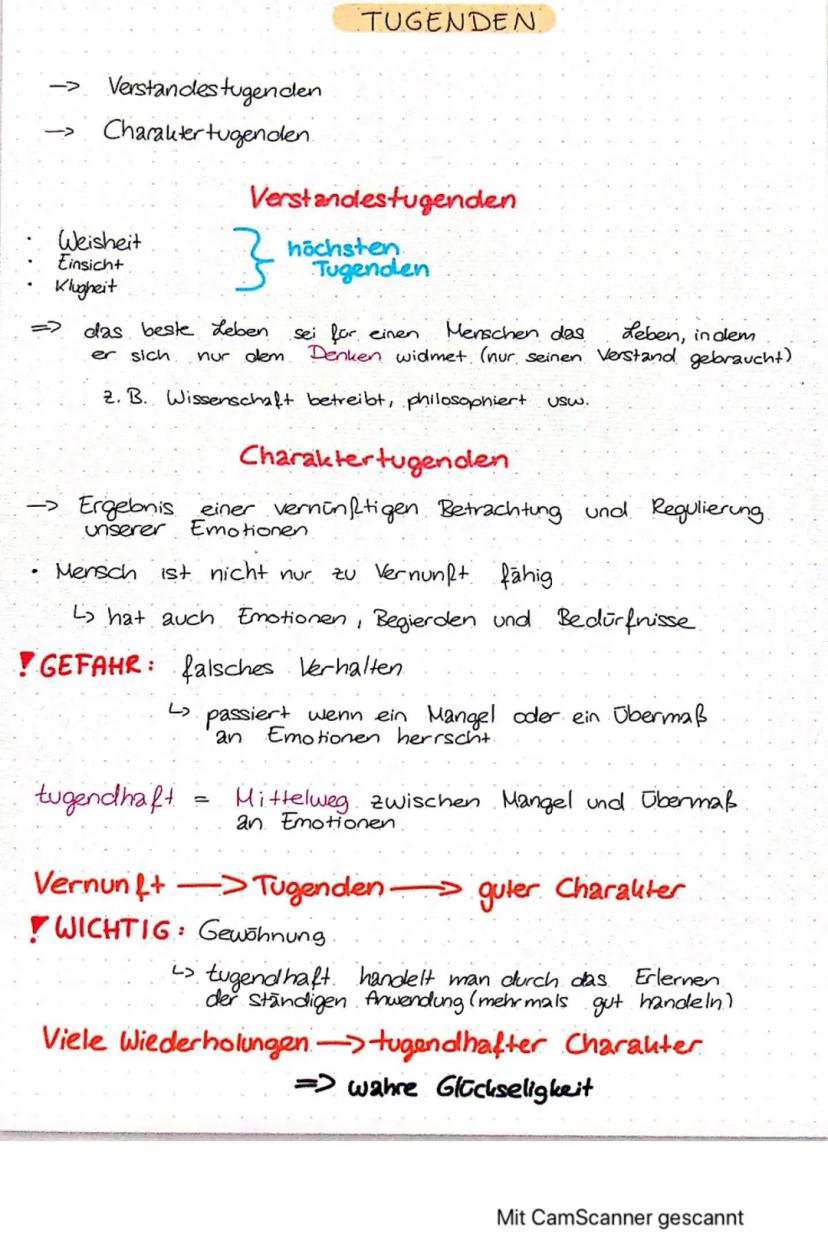 TUGENDEN
-> Verstandestugenden
-> Charaktertugenden
Verstandestugenden
• Weisheit
• Einsicht
• Klugheit
} höchsten
Tugenden
=> das beste Leben sei für einen Menschen das Leben, indem
er sich nur dem Denken widmet (nur seinen Verstand gebraucht)
z. B. Wissenschaft betreibt, philosophiert usw.
Charaktertugenden
-> Ergebnis einer vernünftigen Betrachtung und Regulierung
unserer Emotionen
• Mensch ist nicht nur zu Vernunft fähig
↳ hat auch Emotionen, Begierden und Bedürfnisse
! GEFAHR: falsches Verhalten
↳ passiert wenn ein Mangel oder ein Übermaß
an Emotionen herrscht
tugendhaft = Mittelweg zwischen Mangel und Übermaß
an Emotionen
Vernunft -> Tugenden -> guter Charakter
! WICHTIG: Gewöhnung
↳ tugendhaft handelt man durch das Erlernen
der ständigen Anwendung (mehrmals gut handeln)
Viele Wiederholungen -> tugendhafter Charakter
=> wahre Glückseligkeit
Mit CamScanner gescannt